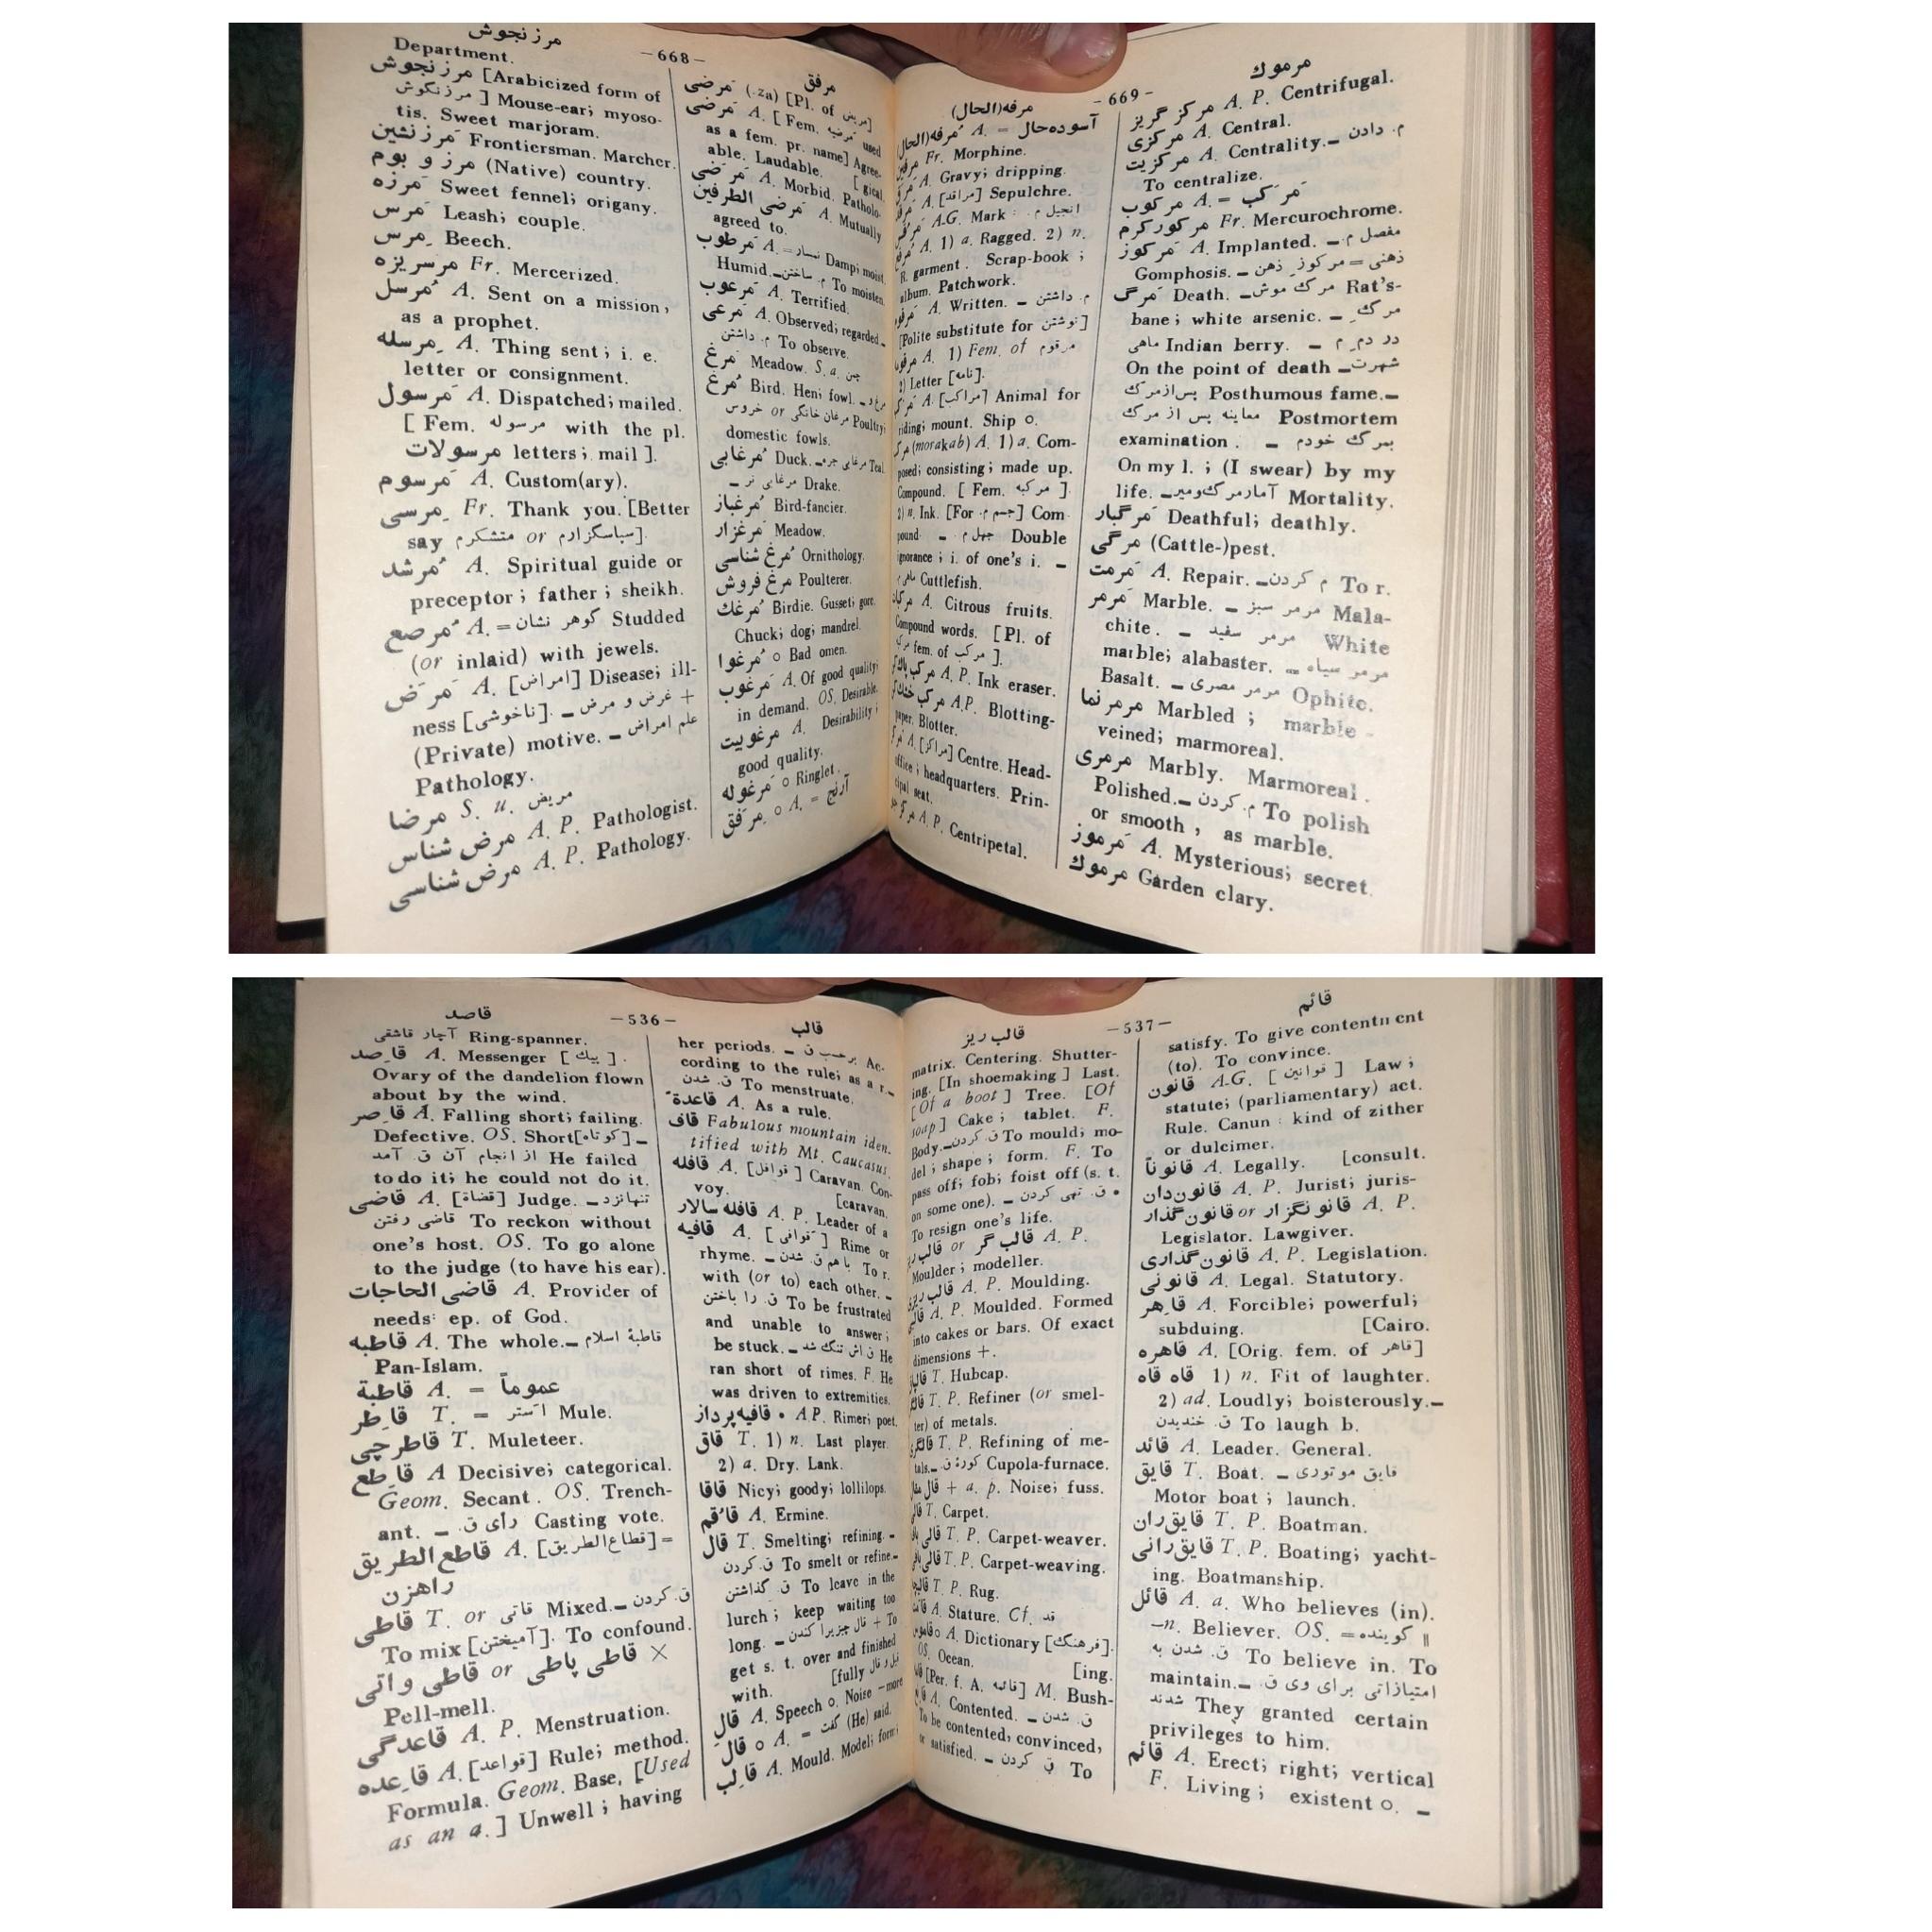 مرزنجوش
—668—
مرفق
Department.
مرزنجوش [Arabicized form of
مرزنگوش] Mouse-ear; myoso-
tis. Sweet marjoram.
مَرزنشین Frontiersman. Marcher.
مرز و بوم (Native) country.
مَرزه Sweet fennel; origany.
مَرس Leash; couple.
مِرس Beech.
مرسریزه Fr. Mercerized.
مُرسل A. Sent on a mission,
as a prophet.
مِرسله A. Thing sent; i. e.
letter or consignment.
مَرسول A. Dispatched; mailed.
[Fem. مرسوله with the pl.
مرسولات letters; mail].
مَرسوم A. Custom(ary).
مِرسی Fr. Thank you. [Better
say متشکرم or سپاسگزارم].
مُرشد A. Spiritual guide or
preceptor; father; sheikh.
مُرصع A. = گوهر نشان Studded
(or inlaid) with jewels.
مَرَض A. [امراض] Disease; ill-
ness [ناخوشی]. — غرض و مرض +
(Private) motive. — علم امراض
Pathology.
مرضا S. u. مریض
مرض شناس A. P. Pathologist.
مرض شناسی A. P. Pathology.
مَرضی (-za) [Pl. of مریض]
مَرضی A. [Fem. مرضیه used
as a fem. pr. name] Agree-
able. Laudable. [gical.
مَرَضی A. Morbid. Patholo-
مَرضی الطرفین A. Mutually
agreed to.
مَرطوب A. = نمسار Damp; moist.
Humid. — م. ساختن To moisten.
مَرعوب A. Terrified.
مَرعی A. Observed; regarded. —
م. داشتن To observe.
مَرغ Meadow. S. a. چمن
مُرغ Bird. Hen; fowl. — مرغ و
خروس or مرغان خانگی Poultry;
domestic fowls.
مُرغابی Duck. — مرغابی جره Teal.
— مرغابی نر Drake.
مُرغباز Bird-fancier.
مَرغزار Meadow.
مُرغ شناسی Ornithology.
مرغ فروش Poulterer.
مُرغك Birdie. Gusset; gore.
Chuck; dog; mandrel.
مُرغوا o Bad omen.
مَرغوب A. Of good quality;
in demand. OS. Desirable.
مرغوبیت A. Desirability;
good quality.
مَرغوله o Ringlet.
مِرفَق o A. = آرنج
مرفه(الحال)
—669—
مرموك
مُرفه(الحال) A. = آسوده‌حال
Fr. Morphine.
A. Gravy; dripping.
A. [مراقد] Sepulchre.
A.G. Mark : انجیل م.
A. 1) a. Ragged. 2) n.
R. garment. Scrap-book;
album. Patchwork.
A. Written. — م. داشتن
[Polite substitute for نوشتن]
A. 1) Fem. of مرقوم
2) Letter [نامه].
A. [مراکب] Animal for
riding; mount. Ship o.
(morakab) A. 1) a. Com-
posed; consisting; made up.
Compound. [Fem. مرکبه].
2) n. Ink. [For جسم م.] Com-
pound — جهل م. Double
ignorance; i. of one's i. —
ماهی م. Cuttlefish.
A. Citrous fruits.
Compound words. [Pl. of
fem. of مرکب].
مرکب پاك A. P. Ink eraser.
مرکب خشك A.P. Blotting-
paper. Blotter.
A. [مراکز] Centre. Head-
office; headquarters. Prin-
cipal seat.
A. P. Centripetal.
مرکز گریز A. P. Centrifugal.
مرکزی A. Central.
مرکزیت A. Centrality. — م. دادن
To centralize.
مرکوب A. = مَرکَب
مرکورکرم Fr. Mercurochrome.
مَرکوز A. Implanted. — مفصل م.
Gomphosis. — ذهنی = مرکوز ذهن
مَرگ Death. — مرك موش Rat's-
bane; white arsenic. — مرك
ماهی Indian berry. — در دم م.
On the point of death — شهرت
پس‌ازمرك Posthumous fame. —
معاینه پس از مرك Postmortem
examination. — بمرك خودم
On my l.; (I swear) by my
life. — آمارمرك‌ومیر Mortality.
مَرگبار Deathful; deathly.
مرگی (Cattle-)pest.
مَرمت A. Repair. — م کردن To r.
مَرمر Marble. — مرمر سبز Mala-
chite. — مرمر سفید White
marble; alabaster. — مرمر سیاه
Basalt. — مرمر مصری Ophite.
مرمرنما Marbled; marble-
veined; marmoreal.
مرمری Marbly. Marmoreal.
Polished. — م. کردن To polish
or smooth, as marble.
مَرموز A. Mysterious; secret.
مرموك Garden clary.
قاصد
—536—
قالب
آچار قاشقی Ring-spanner.
قاصِد A. Messenger [پیك].
Ovary of the dandelion flown
about by the wind.
قاصِر A. Falling short; failing.
Defective. OS. Short[کوتاه] —
از انجام آن ق. آمد He failed
to do it; he could not do it.
قاضی A. [قضاة] Judge. — تنهانزد
قاضی رفتن To reckon without
one's host. OS. To go alone
to the judge (to have his ear).
قاضی الحاجات A. Provider of
needs: ep. of God.
قاطبه A. The whole. — قاطبهٔ اسلام
Pan-Islam.
قاطبة A. = عموماً
قاطِر T. = اَستر Mule.
قاطرچی T. Muleteer.
قاطِع A Decisive; categorical.
Geom. Secant. OS. Trench-
ant. — رأی ق. Casting vote.
قاطع الطریق A. [قطاع‌الطریق] =
راهزن
قاطی T. or قاتی Mixed. — ق. کردن
To mix [آمیختن]. To confound.
قاطی واتی or قاطی پاطی ×
Pell-mell.
قاعدگی A. P. Menstruation.
قاعِده A. [قواعد] Rule; method.
Formula. Geom. Base. [Used
as an a.] Unwell; having
her periods. — برحسب ق. Ac-
cording to the rule; as a r. —
ق. شدن To menstruate.
قاعدةً A. As a rule.
قاف Fabulous mountain iden-
tified with Mt. Caucasus.
قافله A. [قوافل] Caravan. Con-
voy. [caravan.
قافله سالار A. P. Leader of a
قافیه A. [قوافی] Rime or
rhyme. — با هم ق. شدن To r.
with (or to) each other. —
ق. را باختن To be frustrated
and unable to answer;
be stuck. — ق اش تنگ شد He
ran short of rimes. F. He
was driven to extremities.
قافیه‌پرداز • A.P. Rimer; poet.
قاق T. 1) n. Last player.
2) a. Dry. Lank.
قاقا Nicy; goody; lollilops.
قاقُم A. Ermine.
قال T. Smelting; refining. —
ق. کردن To smelt or refine. —
ق. گذاشتن To leave in the
lurch; keep waiting too
long. — قال چیزیرا کندن + To
get s. t. over and finished
with. [fully قیل و قال
قال A. Speech o. Noise — more
قالَ o A. = گفت (He) said.
قالِب A. Mould. Model; form;
قالب ریز
—537—
قائم
matrix. Centering. Shutter-
ing. [In shoemaking] Last.
[Of a boot] Tree. [Of
soap] Cake; tablet. F.
Body. — ق. کردن To mould; mo-
del; shape; form. F. To
pass off; fob; foist off (s. t.
on some one). — ق. تهی کردن •
To resign one's life.
قالب‌ریز or قالب گر A. P.
Moulder; modeller.
قالب ریزی A. P. Moulding.
A. P. Moulded. Formed
into cakes or bars. Of exact
dimensions +.
T. Hubcap.
T. P. Refiner (or smel-
ter) of metals.
T. P. Refining of me-
tals. — کورهٔ ق. Cupola-furnace.
قال مقال + a. p. Noise; fuss.
T. Carpet.
T. P. Carpet-weaver.
T. P. Carpet-weaving.
T. P. Rug.
A. Stature. Cf. قد
قاموس o A. Dictionary [فرهنگ].
OS. Ocean. [ing.
[Per. f. A.] M. Bush-
A. Contented. — ق. شدن
To be contented, convinced,
or satisfied. — ق. کردن To
satisfy. To give contentment
(to). To convince.
قانون A.G. [قوانین] Law;
statute; (parliamentary) act.
Rule. Canun: kind of zither
or dulcimer.
قانوناً A. Legally. [consult.
قانون‌دان A. P. Jurist; juris-
قانون‌گذار or قانونگزار A. P.
Legislator. Lawgiver.
قانون‌گذاری A. P. Legislation.
قانونی A. Legal. Statutory.
قاهِر A. Forcible; powerful;
subduing. [Cairo.
قاهره A. [Orig. fem. of قاهر]
قاه قاه 1) n. Fit of laughter.
2) ad. Loudly; boisterously. —
ق. خندیدن To laugh b.
قائد A. Leader. General.
قایق T. Boat. — قایق موتوری
Motor boat; launch.
قایق‌ران T. P. Boatman.
قایق‌رانی T. P. Boating; yacht-
ing. Boatmanship.
قائل A. a. Who believes (in).
—n. Believer. OS. = گوینده ‖
ق. شدن به To believe in. To
maintain. — امتیازاتی برای وی ق.
شدند They granted certain
privileges to him.
قائم A. Erect; right; vertical
F. Living; existent o. —